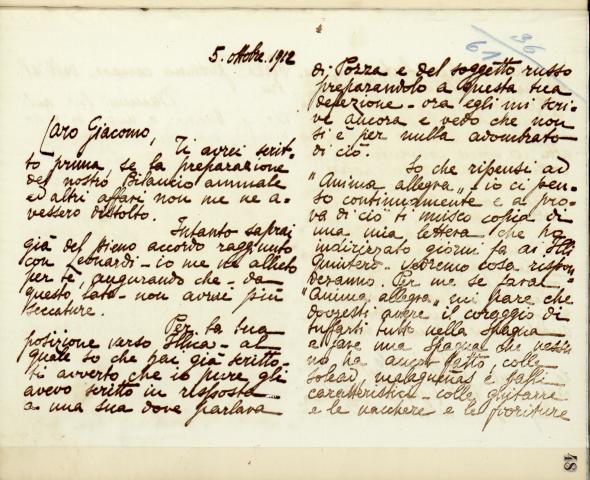 5. ottobre. 1912
Caro Giacomo,
Ti avrei scrit-
to prima, se la preparazione
del nostro Bilancio annuale
ed altri affari non me ne a-
vessero distolto.
Intanto saprai
già del pieno accordo raggiunto
con Leonardi - io me ne allieto
per te, augurando che - da
questo lato - non avrai più
seccature.
Per la tua
posizione verso Illica - al
quale so che hai già scritto -
ti avverto che io pure gli
avevo scritto in risposta
a una sua dove parlava
36
61
di Pozza e del soggetto russo
preparandolo a questa tua
defezione - ora egli mi scri-
ve ancora e vedo che non
si è per nulla adombrato
di ciò.
So che ripensi ad
"Anima allegra" - io ci pen-
so continuamente e a pro-
va di ciò ti unisco copia di
una mia lettera che ho
indirizzato giorni fa ai Flli
Quintero - vedremo cosa rispon-
deranno. Per me se farai
"Anima allegra" mi pare che
dovresti avere il coraggio di
tuffarti tutto nella Spagna
e fare una Spagna che nessu-
no ha ancor fatto, colle
solead, malagueñas e balli
caratteristici - colle ghitarre
e le nacchere e le fioriture
48